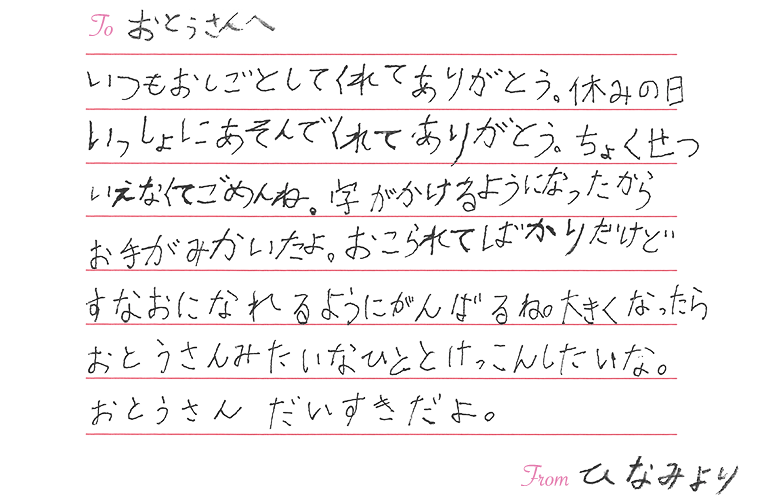 To おとうさんへ
いつもおしごとしてくれてありがとう。休みの日
いっしょにあそんでくれてありがとう。ちょくせつ
いえなくてごめんね。字がかけるようになったから
お手がみかいたよ。おこられてばかりだけど
すなおになれるようにがんばるね。大きくなったら
おとうさんみたいなひととけっこんしたいな。
おとうさん だいすきだよ。
From ひなみより